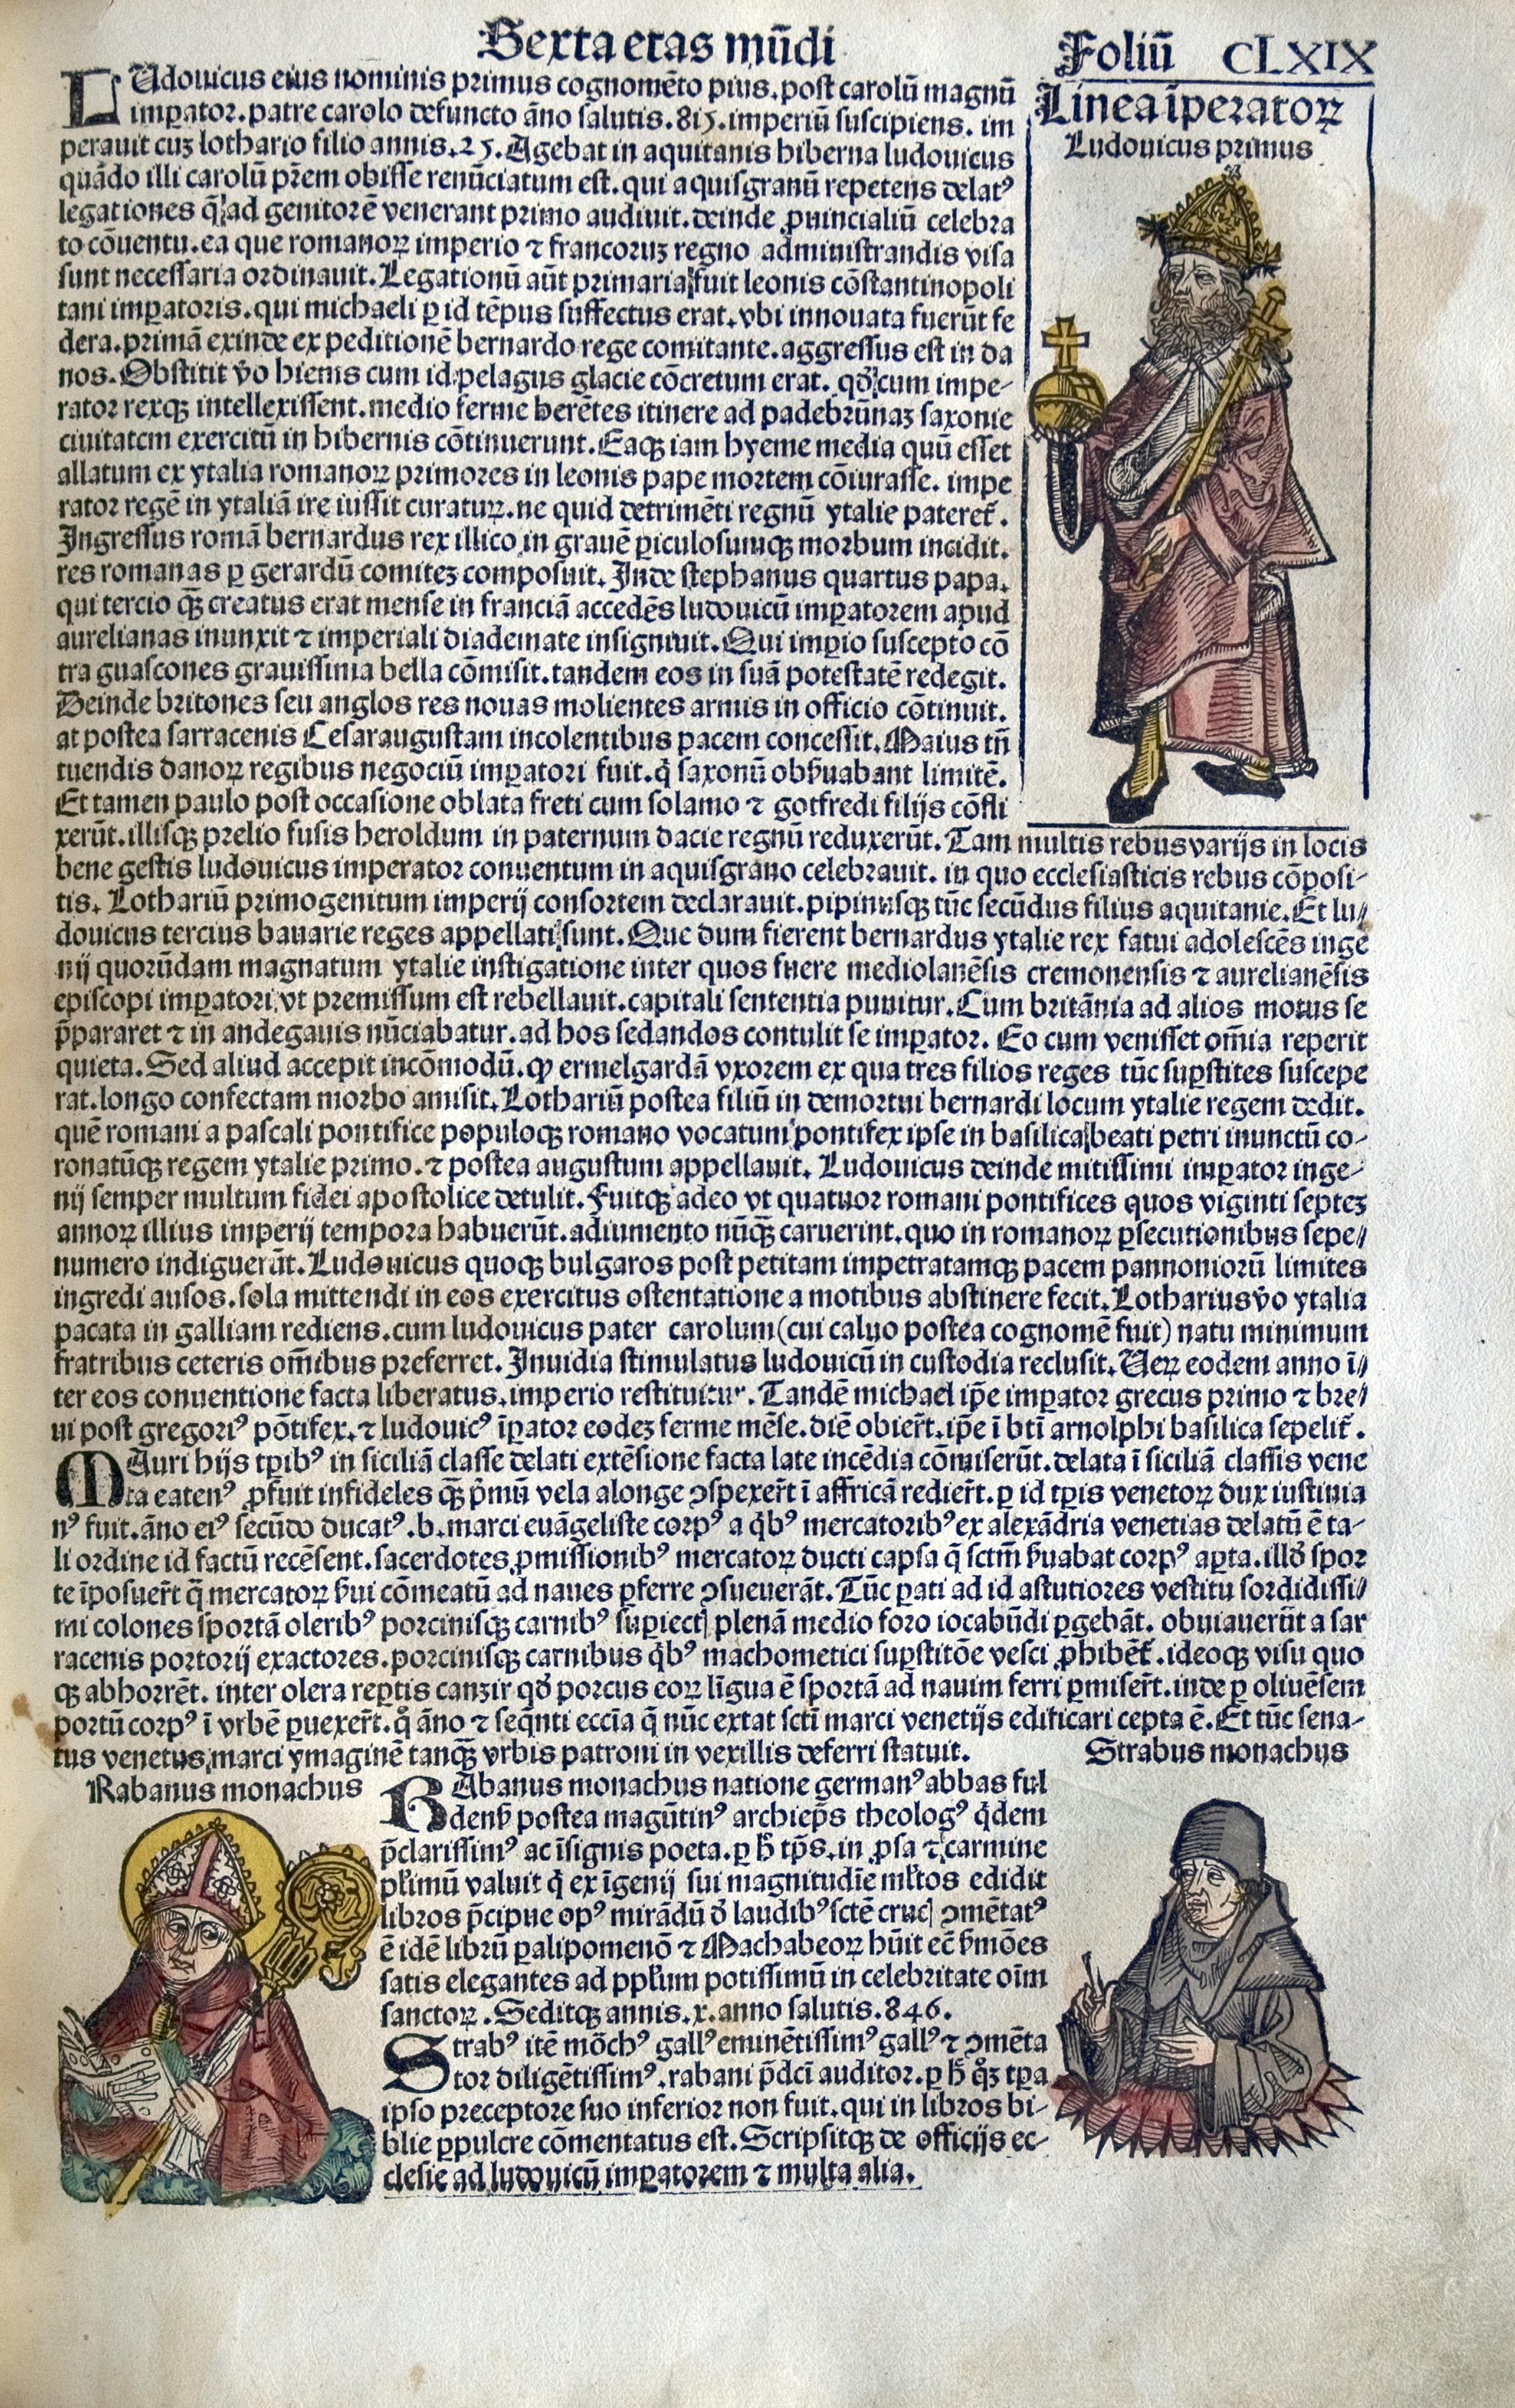 Sexta etas mūdi
Foliū CLXIX
Linea īperatoꝝ
Ludouicus primus
LUdouicus eius nominis primus cognomēto pius. post carolū magnū
imꝑator. patre carolo defuncto āno salutis. 815. imperiū suscipiens. im
perauit cuȝ lothario filio annis. 25. Agebat in aquitanis hiberna ludouicus
quādo illi carolū pr̄em obisse renūciatum est. qui aquisgranū repetens delatꝰ
legationes q̄ ad genitorē venerant primo audiuit. deinde ꝓuincialiū celebra
to cōuentu. ea que romanoꝝ imperio ⁊ francoruȝ regno administrandis visa
sunt necessaria ordinauit. Legationū aūt primaria fuit leonis cōstantinopoli
tani imꝑatoris. qui michaeli ꝑ id tēpus suffectus erat. vbi innouata fuerūt fe
dera. primā exinde expeditionē bernardo rege comitante. aggressus est in da
nos. Obstitit v̄o hiems cum id pelagus glacie cōcretum erat. qd̄ cum impe-
rator rexqꝫ intellexissent. medio ferme herētes itinere ad padebrūnaȝ saxonie
ciuitatem exercitū in hibernis cōtinuerunt. Eaqꝫ iam hyeme media quū esset
allatum ex ytalia romanoꝝ primores in leonis pape mortem cōiurasse. impe
rator regē in ytaliā ire iussit curatuꝝ. ne quid detrimēti regnū ytalie pateret᷑.
Ingressus romā bernardus rex illico in grauē ꝑiculosumqꝫ morbum incidit.
res romanas ꝑ gerardū comiteȝ composuit. Inde stephanus quartus papa.
qui tercio qꝫ̄ creatus erat mense in franciā accedēs ludouicū imꝑatorem apud
aurelianas inunxit ⁊ imperiali diademate insigniuit. Qui imꝑio suscepto cō
tra guascones grauissima bella cōmisit. tandem eos in suā potestatē redegit.
Deinde britones seu anglos res nouas molientes armis in officio cōtinuit.
at postea sarracenis Cesaraugustam incolentibus pacem concessit. Maius tn̄
tuendis danoꝝ regibus negociū imꝑatori fuit. q̇ saxonū obẜuabant limitē.
Et tamen paulo post occasione oblata freti cum solamo ⁊ gotfredi filijs cōfli
xerūt. illisqꝫ prelio fusis heroldum in paternum dacie regnū reduxerūt. Tam multis rebus varijs in locis
bene gestis ludouicus imperator conuentum in aquisgrano celebrauit. in quo ecclesiasticis rebus cōposi-
tis. Lothariū primogenitum imperij consortem declarauit. pipinusqꝫ tūc secūdus filius aquitanie. Et lu-
douicus tercius bauarie reges appellati sunt. Que dum fierent bernardus ytalie rex fatui adolescēs inge
nij quorūdam magnatum ytalie instigatione inter quos fuere mediolanēsis cremonensis ⁊ aurelianēsis
episcopi imꝑatori. vt premissum est rebellauit. capitali sententia punitur. Cum britānia ad alios motus se
p̄pararet ⁊ in andegauis nūciabatur. ad hos sedandos contulit se imꝑator. Eo cum venisset om̄ia reperit
quieta. Sed aliud accepit incōmodū. ꝙ ermelgardā vxorem ex qua tres filios reges tūc suꝑstites suscepe
rat. longo confectam morbo amisit. Lothariū postea filiū in demortui bernardi locum ytalie regem dedit.
quē romani a pascali pontifice populoqꝫ romano vocatum pontifex ipse in basilica beati petri inunctū co-
ronatūqꝫ regem ytalie primo. ⁊ postea augustum appellauit. Ludouicus deinde mitissimi imꝑator inge-
nij semper multum fidei apostolice detulit. Fuitqꝫ adeo vt quatuor romani pontifices quos viginti septeȝ
annoꝝ illius imperij tempora habuerūt. adiumento nūqꝫ̄ caruerint. quo in romanoꝝ ꝑsecutionibus sepe-
numero indiguerūt. Ludouicus quoqꝫ bulgaros post petitam impetratamqꝫ pacem pannoniorū limites
ingredi ausos. sola mittendi in eos exercitus ostentatione a motibus abstinere fecit. Lotharius v̄o ytalia
pacata in galliam rediens. cum ludouicus pater carolum (cui caluo postea cognomē fuit) natu minimum
fratribus ceteris om̄ibus preferret. Inuidia stimulatus ludouicū in custodia reclusit. Ueꝝ eodem anno ī-
ter eos conuentione facta liberatus. imperio restituitur. Tandē michael ip̄e imꝑator grecus primo ⁊ bre-
ui post gregoriꝰ pōtifex. ⁊ ludouicꝰ īꝑator eodeȝ ferme mēse. diē obier̄t. ip̄e ī bt̄i arnolphi basilica sepelit᷑.
MAuri hijs tꝑibꝰ in siciliā classe delati extēsione facta late incēdia cōmiserūt. delata ī siciliā classis vene
ta eatenꝰ ꝓfuit infideles qꝫ̄ p̄mū vela alonge ꝯspexer̄t ī affricā redier̄t. ꝑ id tꝑis venetoꝝ dux iustinia
nꝰ fuit. āno eiꝰ secūdo ducatꝰ. b. marci euāgeliste corpꝰ a q̇bꝰ mercatoribꝰ ex alexādria venetias delatū ē ta-
li ordine id factū recēsent. sacerdotes ꝓmissionibꝰ mercatoꝝ ducti capsa q̄ sctm̄ ẜuabat corpꝰ aꝑta. illd̄ spor
te īposuer̄t q̄ mercatoꝝ ẜui cōmeatū ad naues ꝑferre ꝯsueuerāt. Tūc ꝑati ad id astutiores vestitu sordidissi-
mi colones sportā oleribꝰ porcinisqꝫ carnibꝰ suꝑiectꝭ plenā medio foro iocabūdi ꝑgebāt. obuiauerūt a sar
racenis portorij exactores. porcinisqꝫ carnibus q̇bꝰ machometici suꝑstitōe vesci ꝓhibēt᷑. ideoqꝫ visu quo
qꝫ abhorrēt. inter olera reꝑtis canzir qd̄ porcus eoꝝ līgua ē sportā ad nauim ferri ꝑmiser̄t. inde ꝑ oliuēsem
portū corpꝰ ī vrbē ꝑuexer̄t. qͦ āno ⁊ seq̄nti eccīa q̄ nūc extat scti marci venetijs edificari cepta ē. Et tūc sena-
tus venetus marci ymaginē tanqꝫ̄ vrbis patroni in vexillis deferri statuit.
Strabus monachus
Rabanus monachus
RAbanus monachus natione germanꝰ abbas ful
denẜ postea magūtinꝰ archiep̄s theologꝰ q̇dem
p̄clarissimꝰ ac īsignis poeta. ꝑ h̄ tp̄s. in ꝓsa ⁊ carmine
pl̄rimū valuit q̇ ex īgenij sui magnitudīe ml̄tos edidit
libros p̄cipue opꝰ mirādū d̄ laudibꝰ scte crucꝭ ꝯmētatꝰ
ē idē librū ꝑalipomenō ⁊ Machabeoꝝ hūit ec̄ ẜmōes
satis elegantes ad pplm̄ potissimū in celebritate oīm
sanctoꝝ. Seditqꝫ annis. x. anno salutis. 846.
Strabꝰ itē mōchꝰ gallꝰ eminētissimꝰ gallꝰ ⁊ ꝯmēta
tor diligētissimꝰ. rabani p̄dci auditor. ꝑ h̄ qͦȝ tꝑa
ipso preceptore suo inferior non fuit. qui in libros bi-
blie ꝑpulcre cōmentatus est. Scripsitqꝫ de officijs ec-
clesie ad ludouicū imꝑatorem ⁊ multa alia.